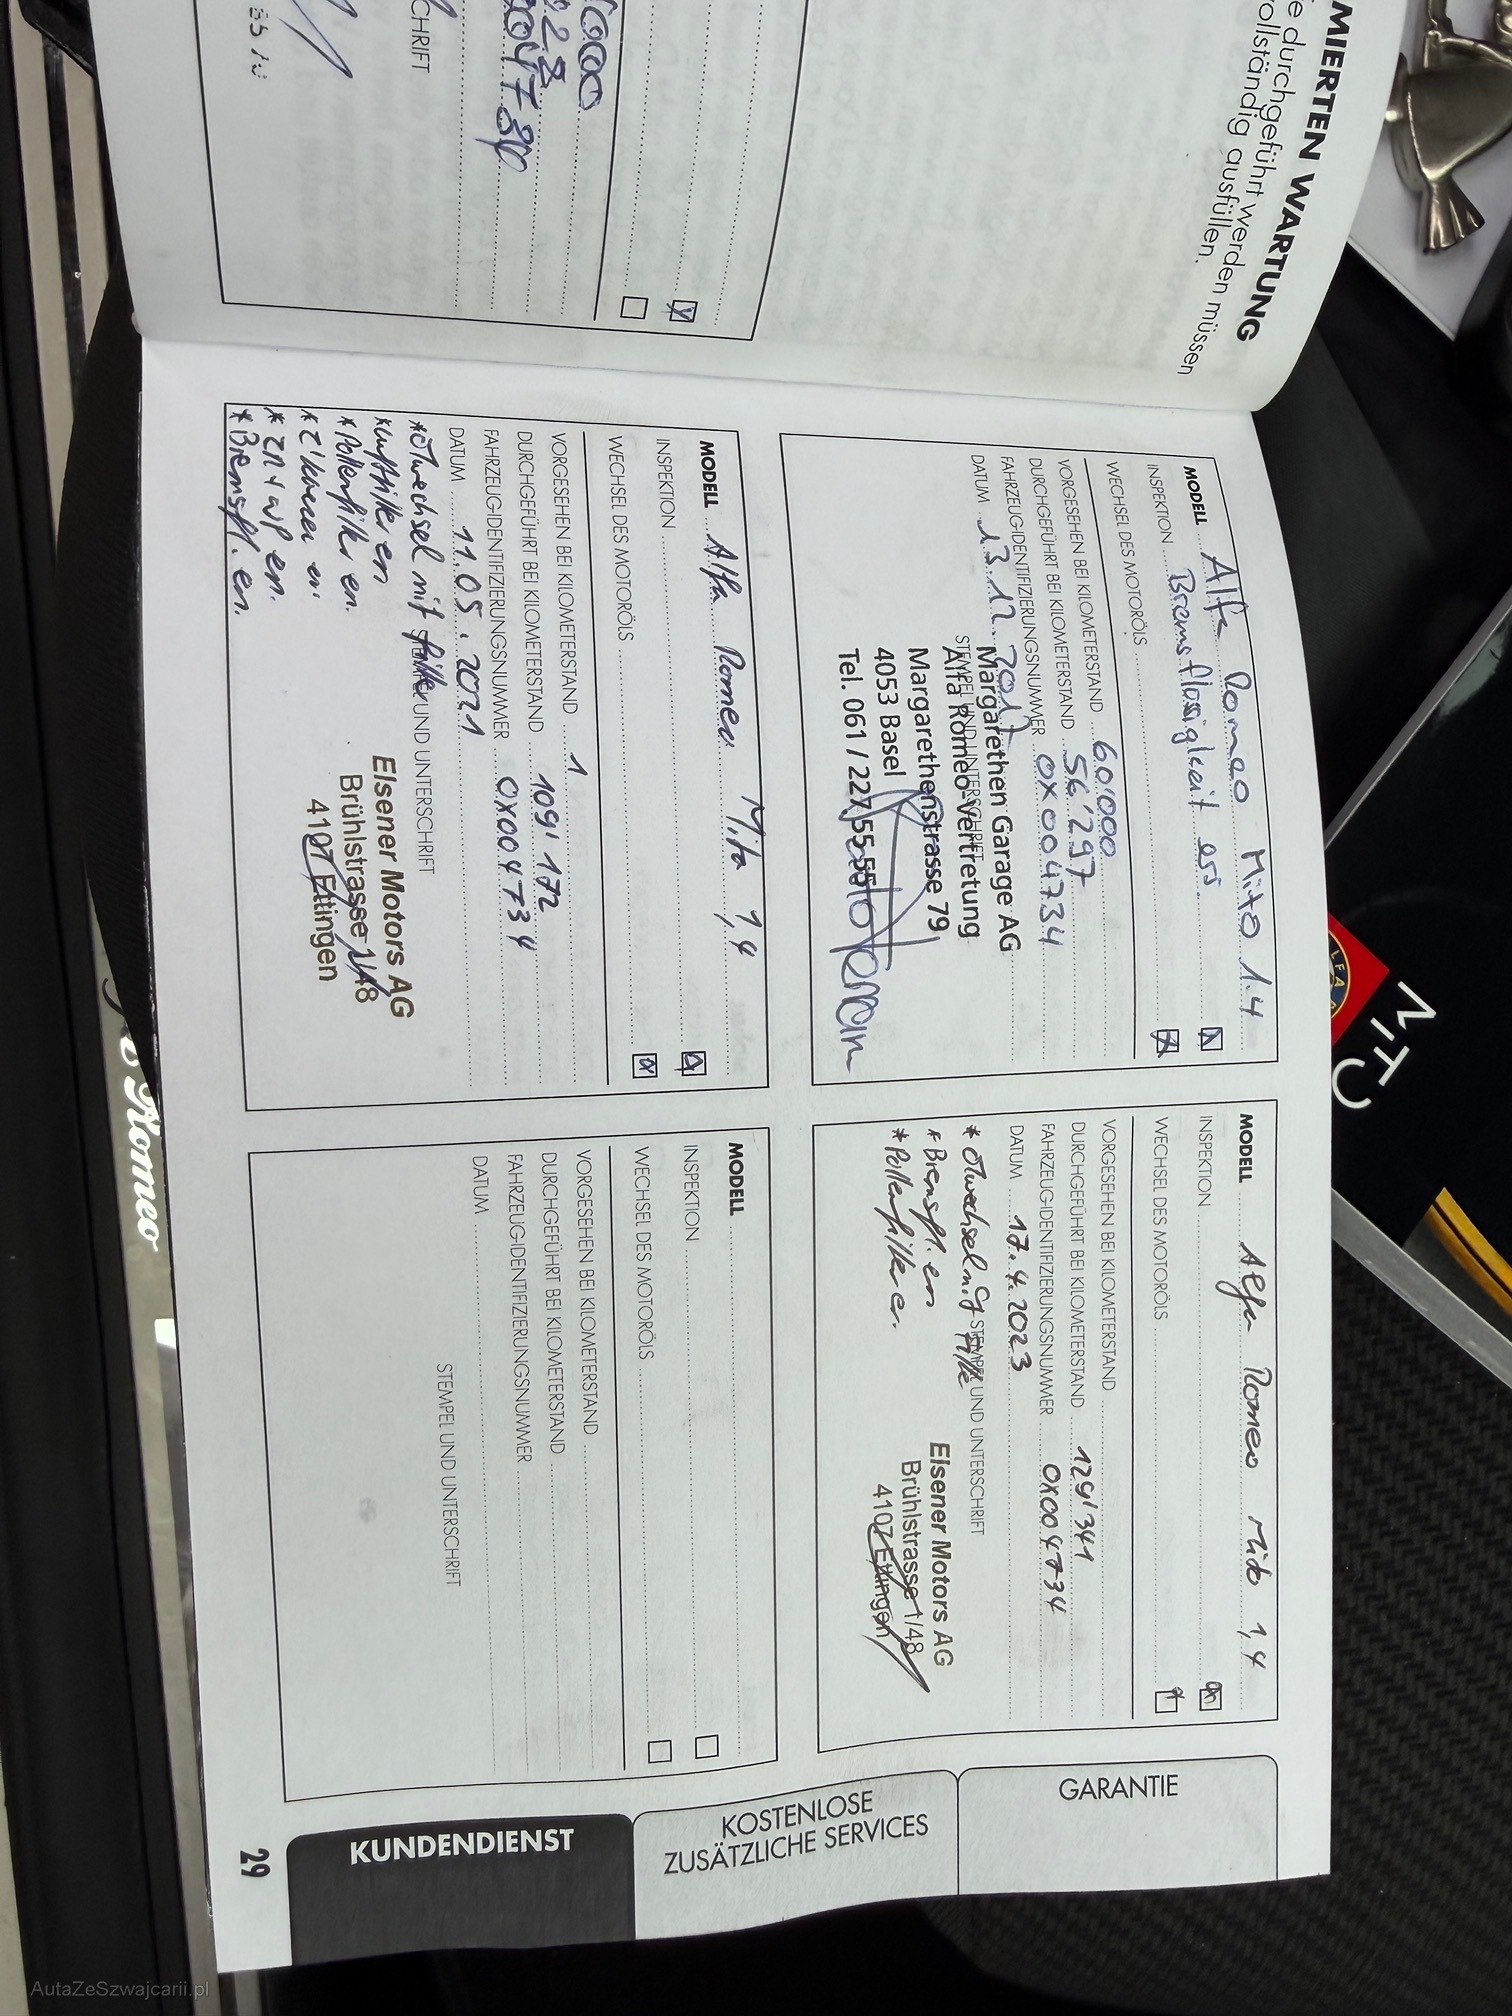 MIERTEN WARTUNG
e durchgeführt werden müssen
ollständig ausfüllen.
CHRIFT
MODELL Alfa Romeo Mito 1.4
INSPEKTION Bremsflüssigkeit ers.
WECHSEL DES MOTORÖLS
VORGESEHEN BEI KILOMETERSTAND 60'000
DURCHGEFÜHRT BEI KILOMETERSTAND 56'297
FAHRZEUG-IDENTIFIZIERUNGSNUMMER 0X004734
DATUM 13.12.2017
STEMPEL UND UNTERSCHRIFT
Margarethen Garage AG
Alfa Romeo-Vertretung
Margarethenstrasse 79
4053 Basel
Tel. 061 / 227 55 55
MODELL Alfa Romeo Mito 1,4
INSPEKTION
WECHSEL DES MOTORÖLS
VORGESEHEN BEI KILOMETERSTAND
DURCHGEFÜHRT BEI KILOMETERSTAND 129'341
FAHRZEUG-IDENTIFIZIERUNGSNUMMER 0X004734
DATUM 17.4.2023
STEMPEL UND UNTERSCHRIFT
* Ölwechsel mit Filter
* Bremsfl. en
* Pollenfilter en.
Elsener Motors AG
Brühlstrasse 1/48
4107 Ettingen
MODELL Alfa Romeo Mito 1,4
INSPEKTION
WECHSEL DES MOTORÖLS
VORGESEHEN BEI KILOMETERSTAND 1
DURCHGEFÜHRT BEI KILOMETERSTAND 109'172
FAHRZEUG-IDENTIFIZIERUNGSNUMMER 0X004734
DATUM 11.05.2021
STEMPEL UND UNTERSCHRIFT
* Ölwechsel mit Filter
* Luftfilter en
* Pollenfilter en.
* Z'kerzen en.
* ZR + WP en.
* Bremsfl. en.
Elsener Motors AG
Brühlstrasse 1/48
4107 Ettingen
MODELL
INSPEKTION
WECHSEL DES MOTORÖLS
VORGESEHEN BEI KILOMETERSTAND
DURCHGEFÜHRT BEI KILOMETERSTAND
FAHRZEUG-IDENTIFIZIERUNGSNUMMER
DATUM
STEMPEL UND UNTERSCHRIFT
GARANTIE
KOSTENLOSE
ZUSÄTZLICHE SERVICES
KUNDENDIENST
29
MiTO
Romeo
AutaZeSzwajcarii.pl